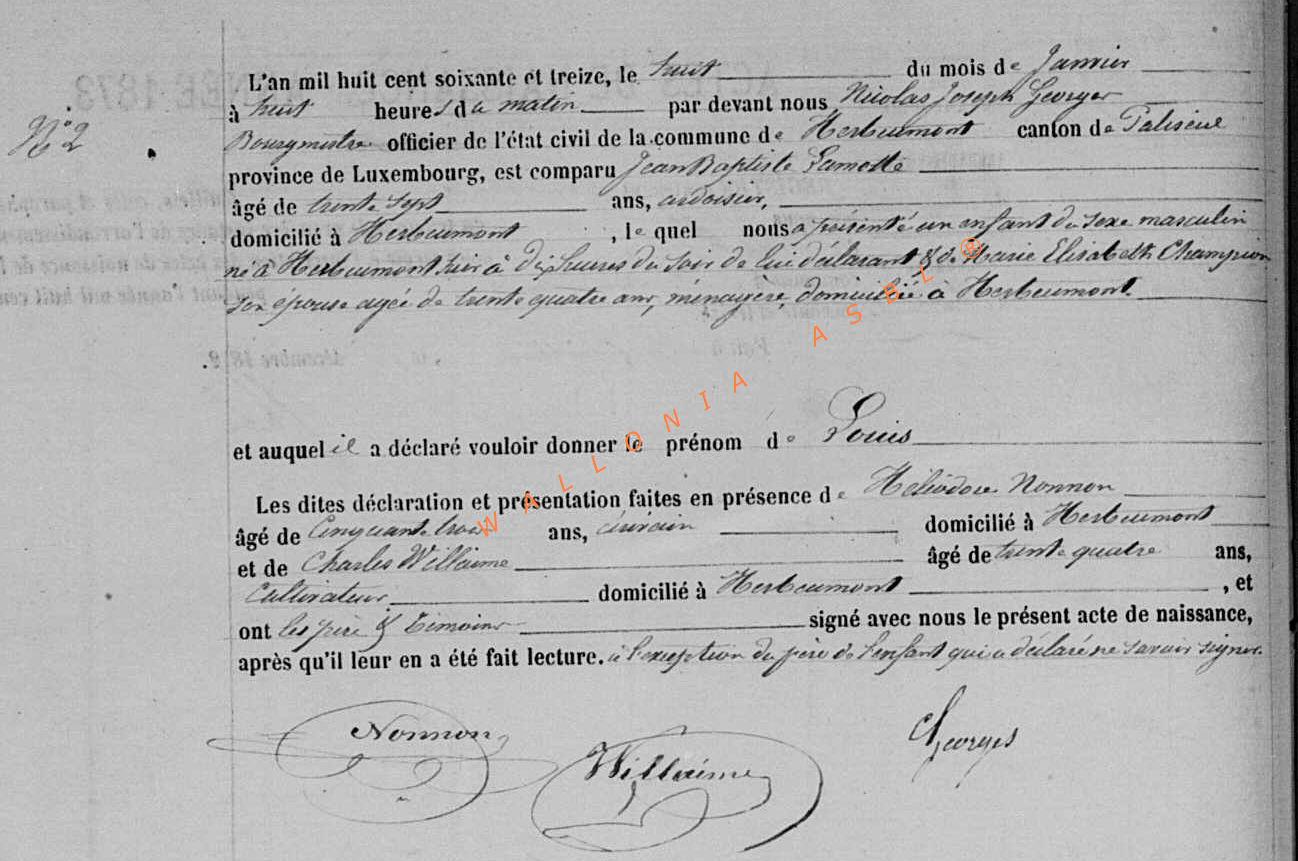 L'an mil huit cent soixante et treize, le huit du mois de Janvier
à huit heures du matin par devant nous Nicolas Joseph Georges
N° 2
Bourgmestre officier de l'état civil de la commune de Herbeumont canton de Paliseul
province de Luxembourg, est comparu Jean Baptiste Lamotte
âgé de trente sept ans, ardoisier,
domicilié à Herbeumont, le quel nous a présenté un enfant du sexe masculin
né à Herbeumont hier à dix heures du soir de lui déclarant & de Marie Elisabeth Champion
son épouse agée de trente quatre ans, ménagère, domiciliée à Herbeumont.
et auquel il a déclaré vouloir donner le prénom de Louis
Les dites déclaration et présentation faites en présence de Héliodore Nonnon
âgé de Cinquante trois ans, écrivain domicilié à Herbeumont
et de Charles Willaime âgé de trente quatre ans,
Cultivateur domicilié à Herbeumont, et
ont les père & témoins signé avec nous le présent acte de naissance,
après qu'il leur en a été fait lecture. à l'exception du père de l'enfant qui a déclaré ne savoir signer.
Nonnon
Willaime
Georges
WALLONIA ASBL ®